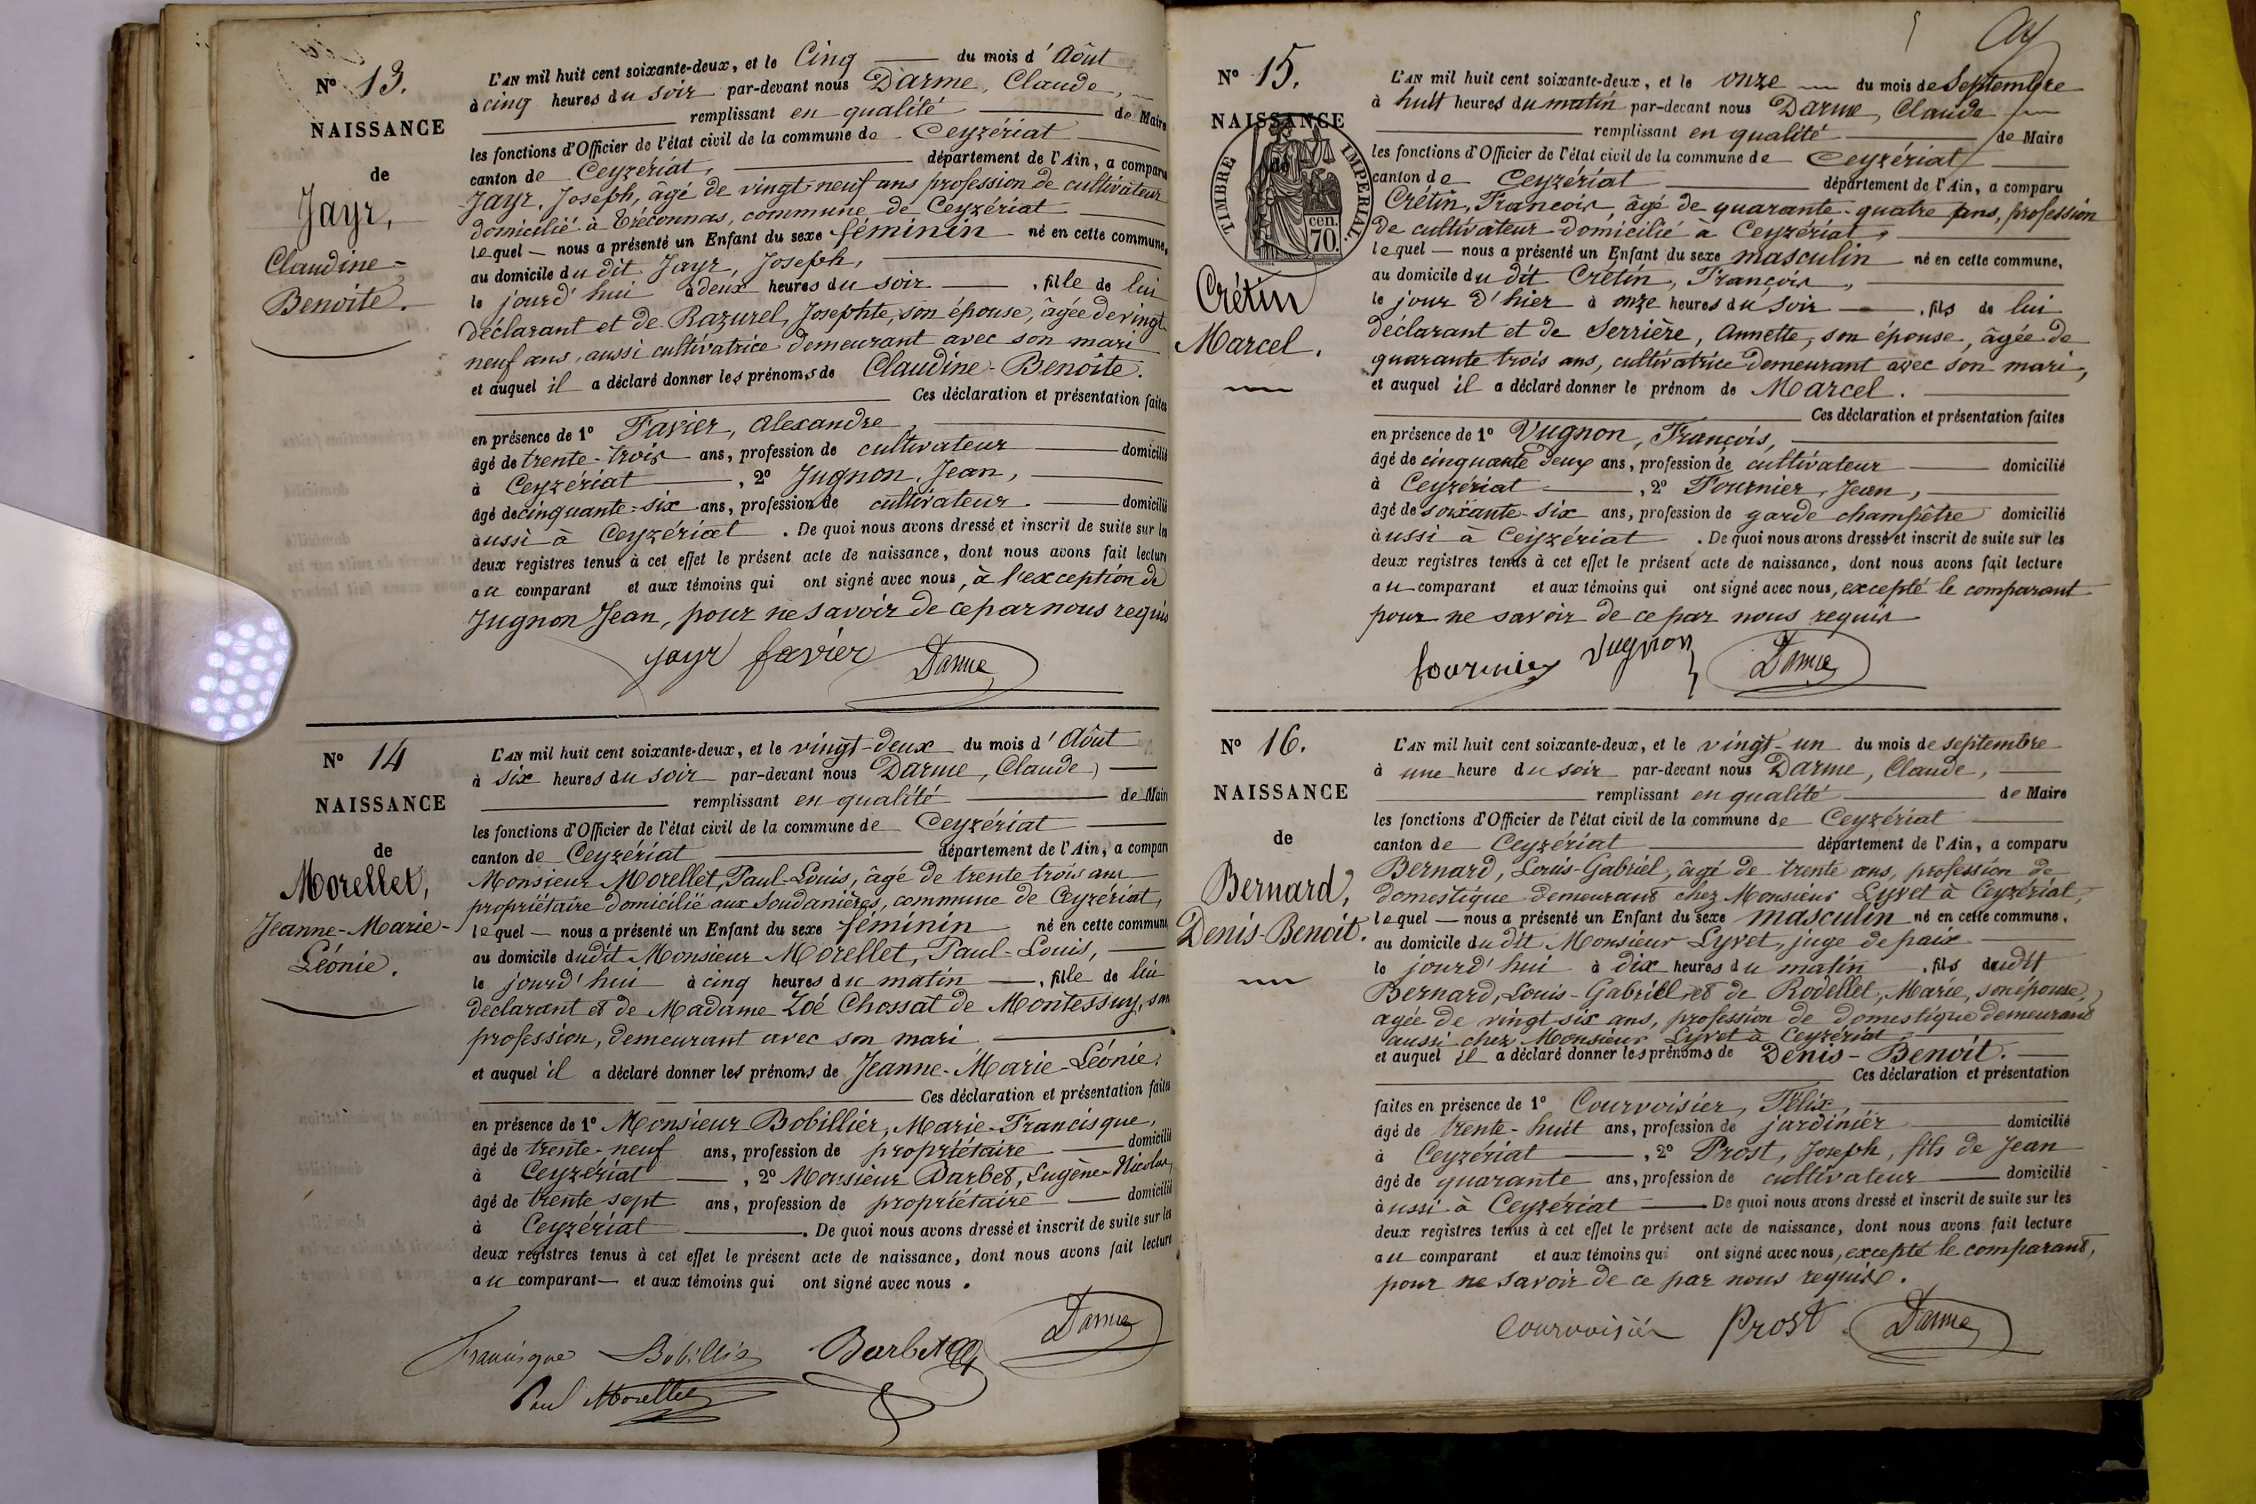 Nº 13.
NAISSANCE
de
Jayr,
Claudine-
Benoite.
L'AN mil huit cent soixante-deux, et le Cinq du mois d'Août
à cinq heures du soir par-devant nous Darme, Claude,
remplissant en qualité de Maire
les fonctions d'Officier de l'état civil de la commune de Ceyzériat
canton de Ceyzériat, département de l'Ain, a comparu
Jayr, Joseph, âgé de vingt-neuf ans profession de cultivateur
domicilié à Tréconnas, commune de Ceyzériat
lequel nous a présenté un Enfant du sexe féminin né en cette commune,
au domicile du dit Jayr, Joseph,
le jourd'hui à deux heures du soir, fille de lui
déclarant et de Razurel, Josephte, son épouse, âgée de vingt
neuf ans, aussi cultivatrice demeurant avec son mari
et auquel il a déclaré donner les prénoms de Claudine-Benoite.
Ces déclaration et présentation faites
en présence de 1º Favier, Alexandre,
âgé de trente-trois ans, profession de cultivateur domicilié
à Ceyzériat, 2º Jugnon, Jean,
âgé de cinquante-six ans, profession de cultivateur domicilié
aussi à Ceyzériat. De quoi nous avons dressé et inscrit de suite sur les
deux registres tenus à cet effet le présent acte de naissance, dont nous avons fait lecture
au comparant et aux témoins qui ont signé avec nous, à l'exception de
Jugnon Jean, pour ne savoir de ce par nous requis
Jayr favier Darme
Nº 14
NAISSANCE
de
Morellet,
Jeanne-Marie-
Léonie.
L'AN mil huit cent soixante-deux, et le vingt-deux du mois d'Août
à six heures du soir par-devant nous Darme, Claude,
remplissant en qualité de Maire
les fonctions d'Officier de l'état civil de la commune de Ceyzériat
canton de Ceyzériat département de l'Ain, a comparu
Monsieur Morellet, Paul-Louis, âgé de trente trois ans
propriétaire domicilié aux Soudanières, commune de Ceyzériat,
lequel nous a présenté un Enfant du sexe féminin né en cette commune,
au domicile dudit Monsieur Morellet, Paul-Louis,
le jourd'hui à cinq heures du matin, fille de lui
déclarant et de Madame Zoé Chossat de Montessuy, san
profession, demeurant avec son mari
et auquel il a déclaré donner les prénoms de Jeanne-Marie-Léonie.
Ces déclaration et présentation faites
en présence de 1º Monsieur Bobillier, Marie-Francisque,
âgé de trente-neuf ans, profession de propriétaire domicilié
à Ceyzériat, 2º Monsieur Barbet, Eugène-Nicolas,
âgé de trente sept ans, profession de propriétaire domicilié
à Ceyzériat. De quoi nous avons dressé et inscrit de suite sur les
deux registres tenus à cet effet le présent acte de naissance, dont nous avons fait lecture
au comparant et aux témoins qui ont signé avec nous.
Francisque Bobillier Barbet Darme
Paul Morellet
Nº 15.
NAISSANCE
de
TIMBRE IMPERIAL.
cen.
70.
Crétin
Marcel.
L'AN mil huit cent soixante-deux, et le onze du mois de Septembre
à huit heures du matin par-devant nous Darme, Claude
remplissant en qualité de Maire
les fonctions d'Officier de l'état civil de la commune de Ceyzériat
canton de Ceyzériat département de l'Ain, a comparu
Crétin, François, âgé de quarante-quatre ans, profession
de cultivateur domicilié à Ceyzériat,
lequel nous a présenté un Enfant du sexe masculin né en cette commune,
au domicile du dit Crétin, François,
le jour d'hier à onze heures du soir, fils de lui
déclarant et de Serrière, Annette, son épouse, âgée de
quarante trois ans, cultivatrice demeurant avec son mari,
et auquel il a déclaré donner le prénom de Marcel.
Ces déclaration et présentation faites
en présence de 1º Vugnon, François,
âgé de cinquante deux ans, profession de cultivateur domicilié
à Ceyzériat, 2º Fournier, Jean,
âgé de soixante-six ans, profession de garde champêtre domicilié
aussi à Ceyzériat. De quoi nous avons dressé et inscrit de suite sur les
deux registres tenus à cet effet le présent acte de naissance, dont nous avons fait lecture
au comparant et aux témoins qui ont signé avec nous, excepté le comparant
pour ne savoir de ce par nous requis
fournier Vugnon Darme
Nº 16.
NAISSANCE
de
Bernard,
Denis-Benoit.
L'AN mil huit cent soixante-deux, et le vingt-un du mois de septembre
à une heure du soir par-devant nous Darme, Claude,
remplissant en qualité de Maire
les fonctions d'Officier de l'état civil de la commune de Ceyzériat
canton de Ceyzériat département de l'Ain, a comparu
Bernard, Louis-Gabriel, âgé de trente ans, profession de
domestique demeurant chez Monsieur Lyvet à Ceyzériat,
lequel nous a présenté un Enfant du sexe masculin né en cette commune,
au domicile du dit Monsieur Lyvet, juge de paix
le jourd'hui à dix heures du matin, fils dudit
Bernard, Louis-Gabriel et de Rodellet, Marie, son épouse,
agée de vingt-six ans, profession de domestique demeurant
aussi chez Monsieur Lyvet à Ceyzériat
et auquel il a déclaré donner les prénoms de Denis-Benoit.
Ces déclaration et présentation
faites en présence de 1º Courvoisier, Félix,
âgé de trente-huit ans, profession de jardinier domicilié
à Ceyzériat, 2º Prost, Joseph, fils de Jean
âgé de quarante ans, profession de cultivateur domicilié
aussi à Ceyzériat De quoi nous avons dressé et inscrit de suite sur les
deux registres tenus à cet effet le présent acte de naissance, dont nous avons fait lecture
au comparant et aux témoins qui ont signé avec nous, excepté le comparant,
pour ne savoir de ce par nous requis.
Courvoisier Prost Darme